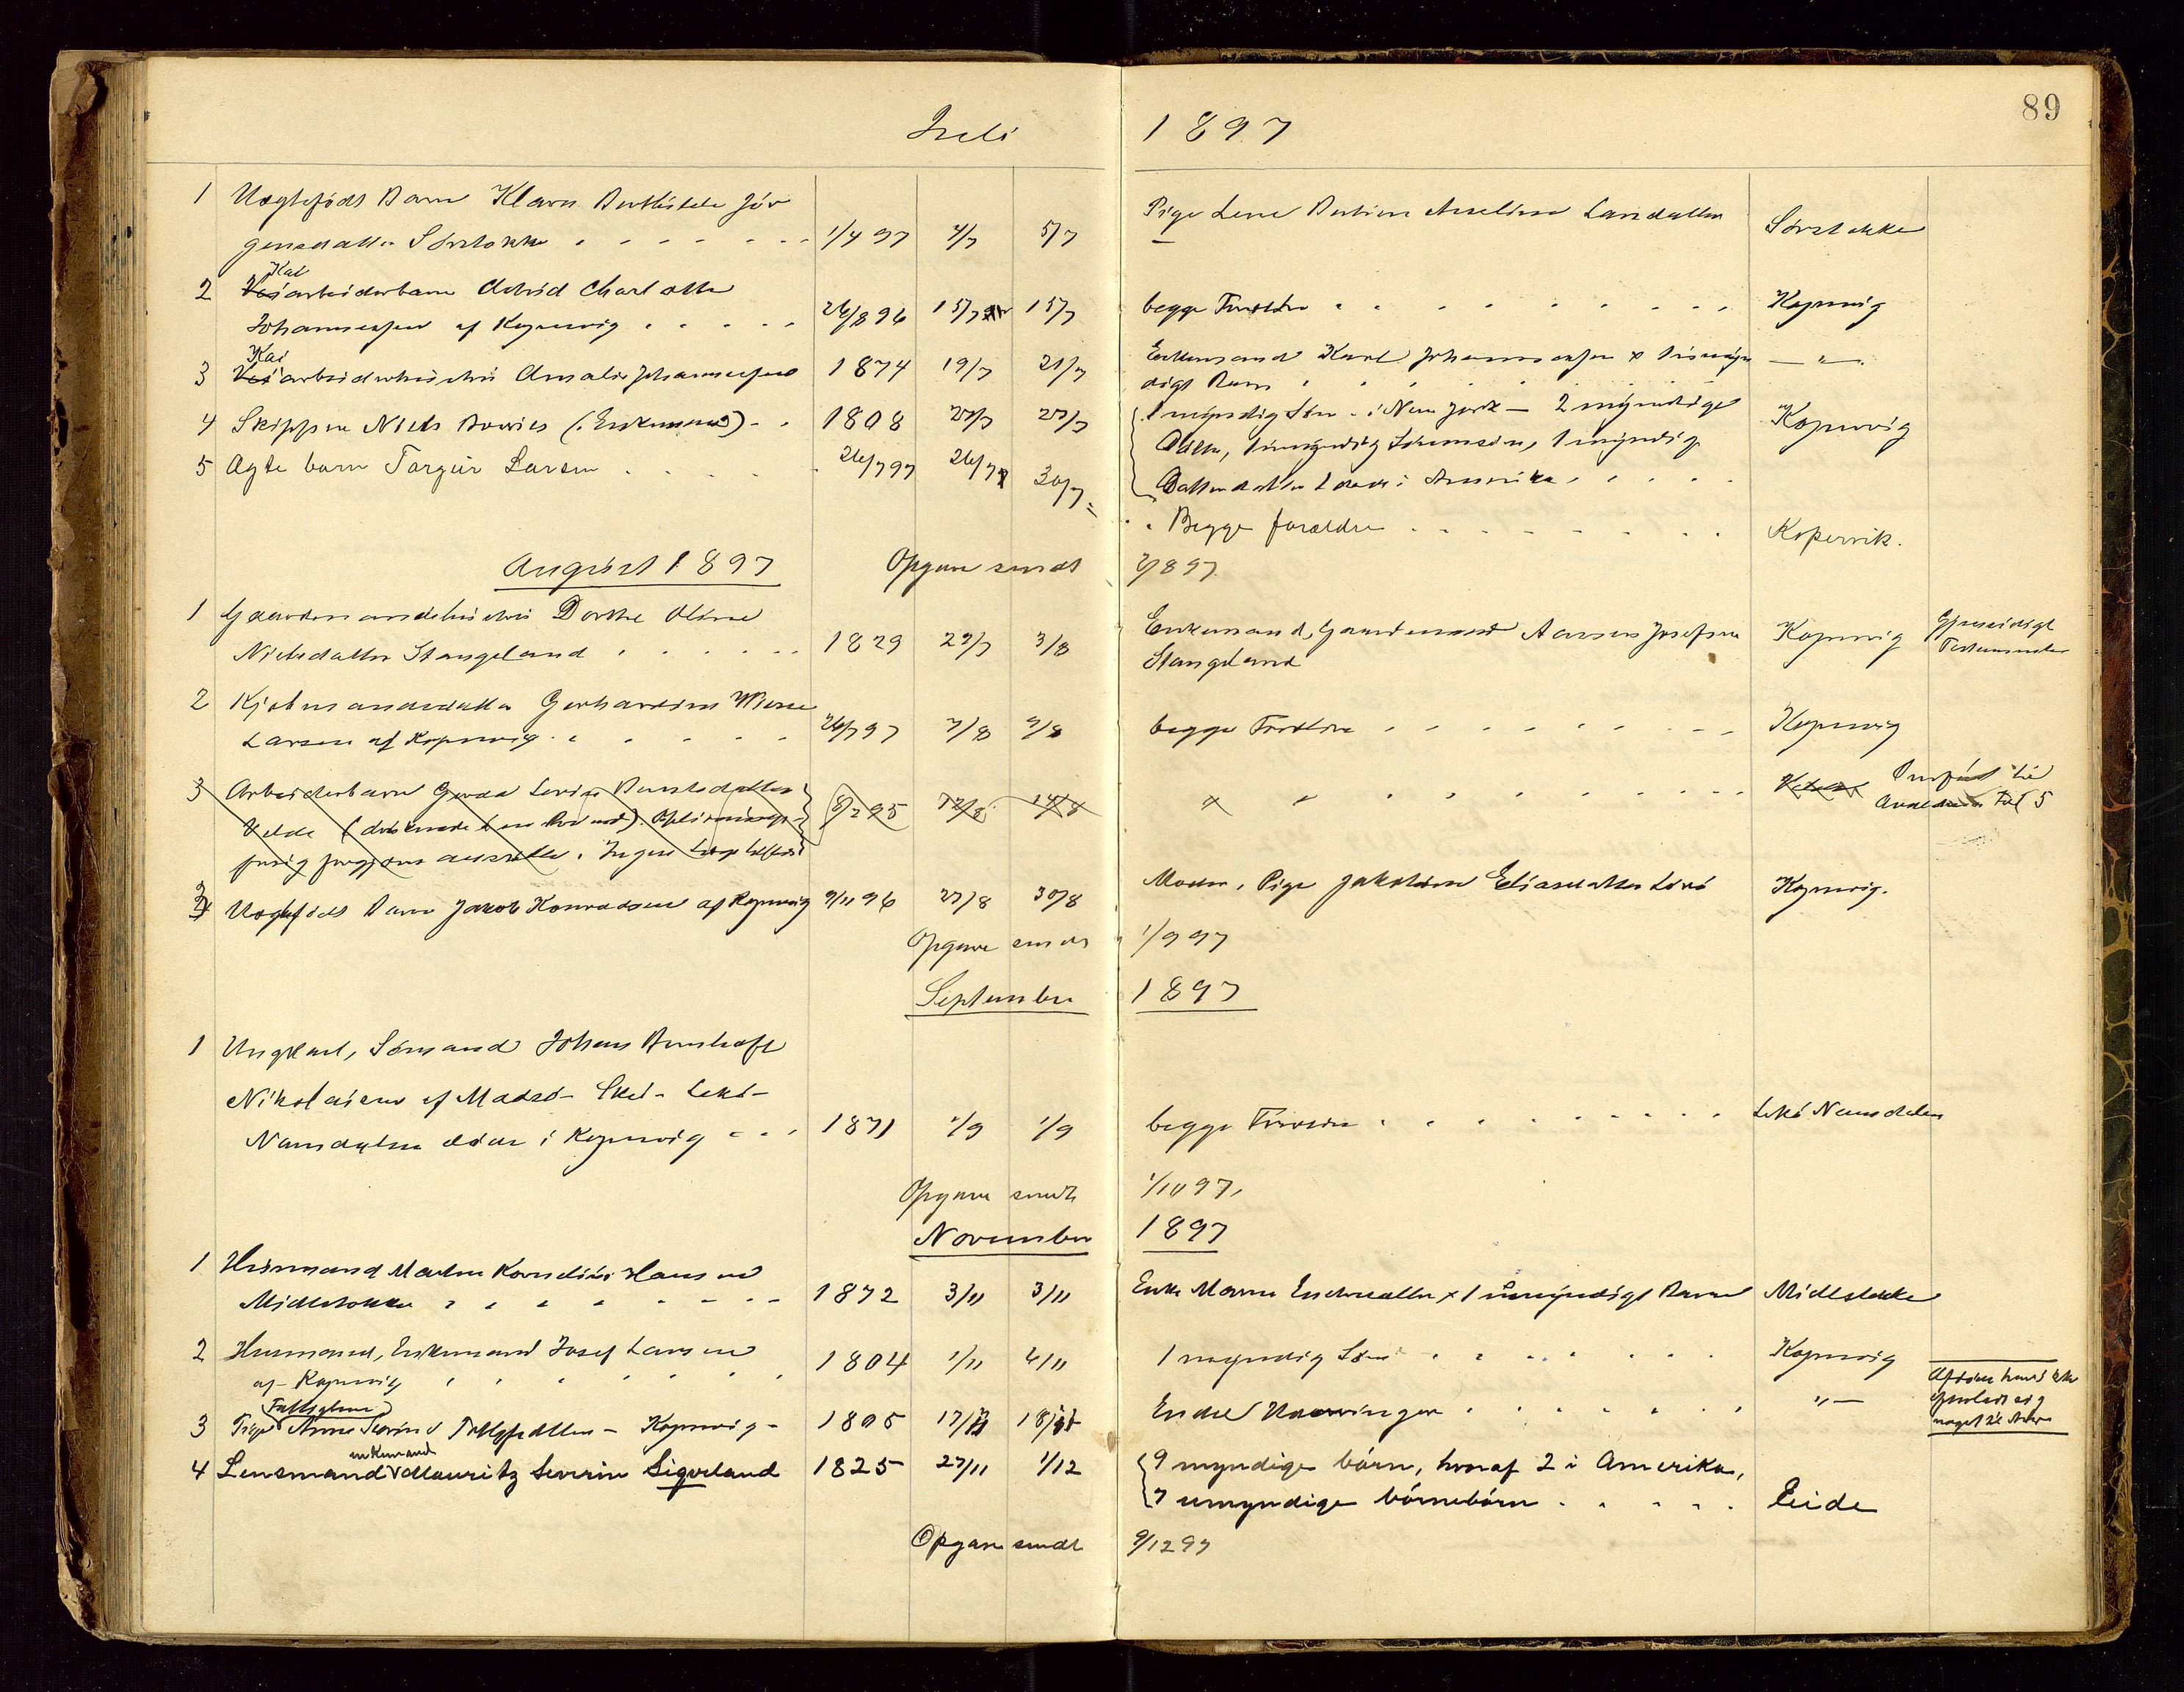 89
Juli 1897
1 Uægtefødt Barn Klara Berthilde Jør
gensdatter Sørstokke 1/4 97 4/7 5/7 Pige Lene Larsdatter Sørstokke
2 Kai
Veiarbeiderbarn Astrid Charlotte
Johannessen af Kopervig 26/8 96 15/7 15/7 begge Forældre Kopervig
3 Kai
Veiarbeiderhustru Amalie Johannessen 1874 19/7 21/7 Enkemand Karl Johannessen x 1 umyn
digt Barn — " —
4 Skipper Niels (Enkemand) 1808 27/7 27/7 1 myndig Søn i New York — 2 myndige
1 umyndig Sønnesøn, 1 myndig Kopervig
Datterdatter i Amerika
5 Ægte barn Torgür Larsen 26/7 97 26/7 30/7 Begge forældre Kopervik.
August 1897 Opgave sendt 2/8 97
1 Gaardmandshustru Dorthe Oline
Nielsdatter Stangeland 1829 29/7 3/8 Enkemand, Gaardmand Josefsen
Stangeland Kopervig Gjensidigt
Testamente
2 Kjøbmandsdatter Gerhardine
Larsen af Kopervig 26/7 97 7/8 9/8 begge Forældre Kopervig
3 Arbeiderbarn Gerda
Velde 8/2 95 12/8 14/8 " Overført til
Avaldsnes Fol 5
3 Uægtefødt Barn Jakob Konradsen af Kopervig 9/11 96 27/8 30/8 Moder, Pige Jakobine Eliasdatter Kopervig.
Opgave sendt 1/9 97
September 1897
1 Ungkarl, Sømand Johan
Nikolaisen af Leka
Namdalen døde i Kopervig 1871 1/9 1/9 begge Forældre Leka Namdalen
Opgave sendt 1/10 97.
November 1897
1 Husmand Martin Kornelius Hansen
Midtstokke 1872 3/11 3/11 Enke Maren Endresdatter x 1 umyndigt Barn Midtstokke
2 Husmand, Enkemand Josef Larsen
af Kopervig 1804 1/11 4/11 1 myndig Søn Kopervig
3 Pige Anne Kopervig 1805 17/11 18/11 Endel Udarvinger " —
Afdøde havde ikke
efterladt sig
noget til Arv
4 enkemand
Lensmand Mauritz Severin Sigveland 1825 27/11 1/12 9 myndige børn, hvoraf 2 i Amerika,
7 umyndige børnebørn Eide
Opgave sendt 9/12 97